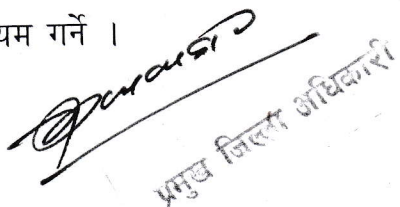 यम गर्ने ।
प्रमुख जिल्ला अधिकारी